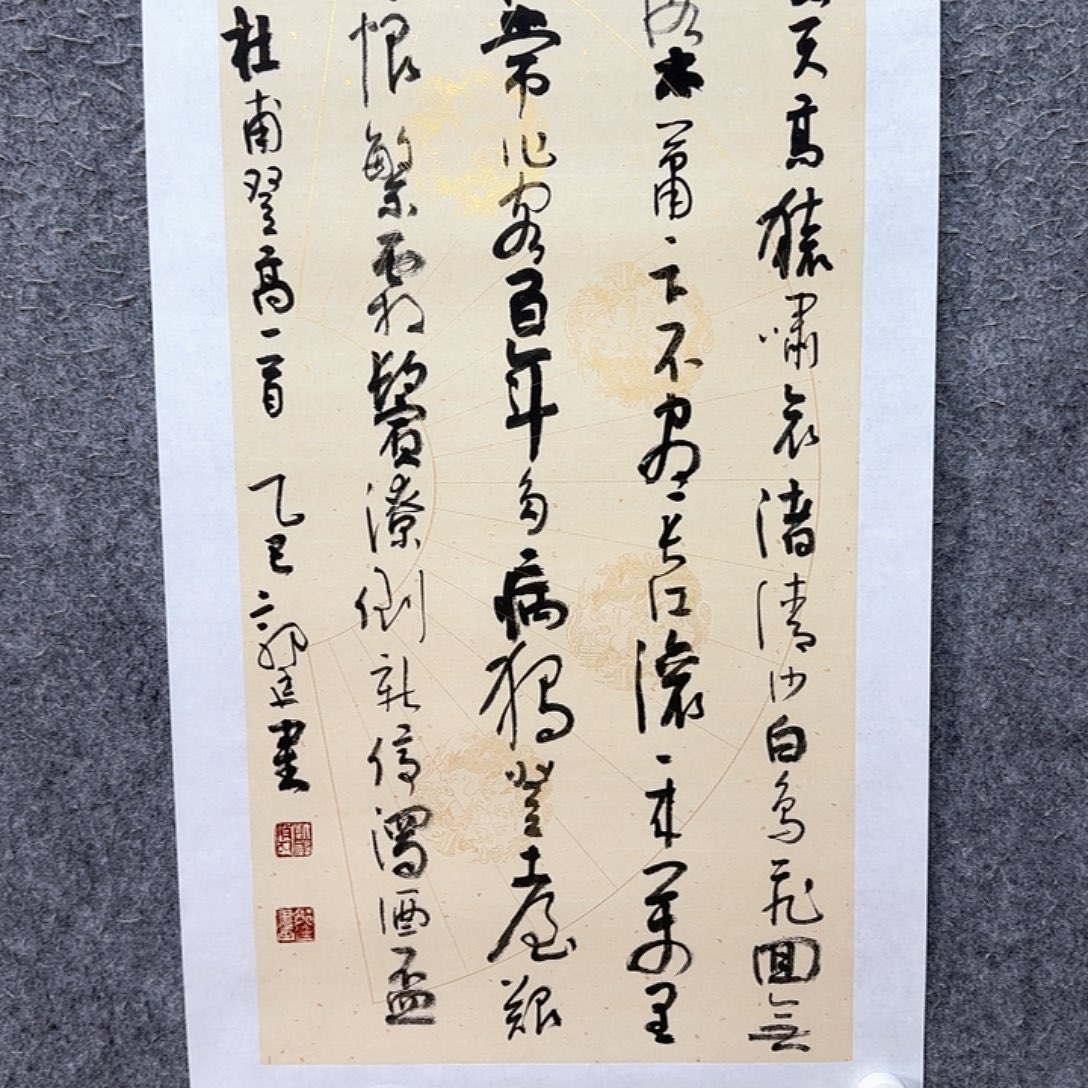 天高猿嘯哀渚清沙白鳥飛回無
落木蕭々下不盡長江滾々來萬里
常作客百年多病獨登臺艱
恨繁霜鬢潦倒新停濁酒盃
杜甫登高一首 乙巳 郭 書